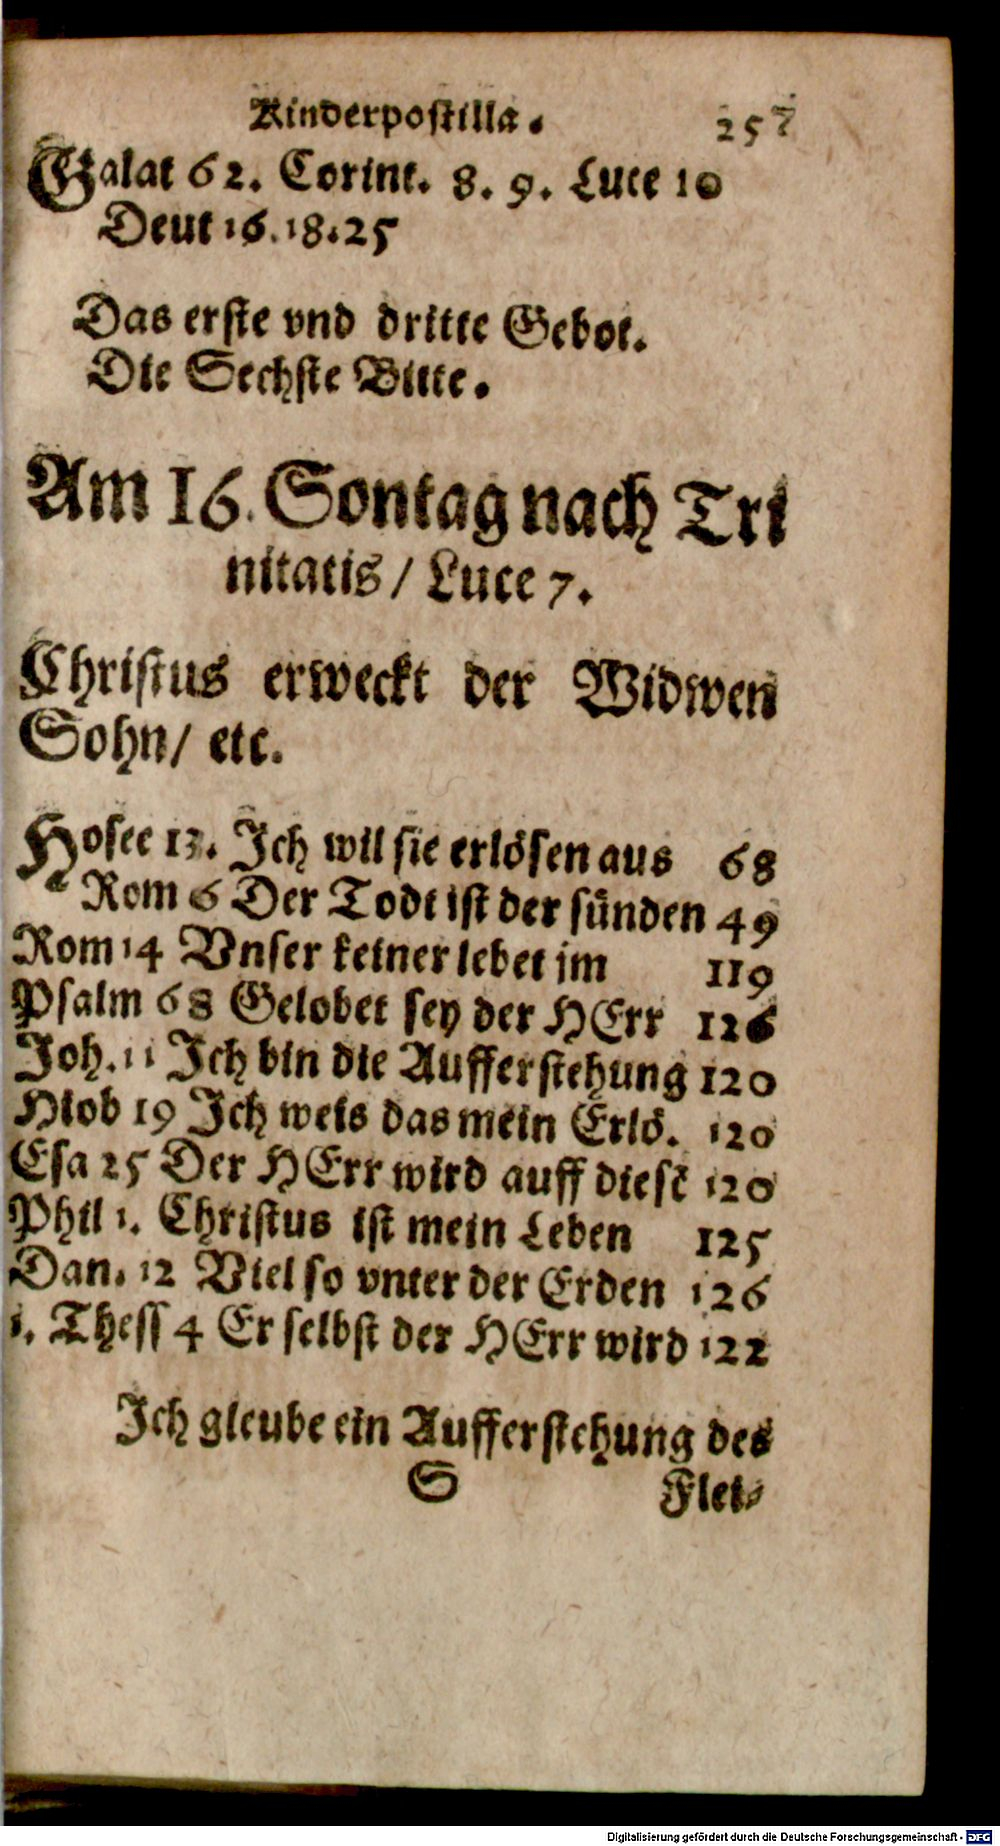 Kinderpostilla. 257
Galat 62. Corint. 8. 9. Luce 10
Deut 16.18.25
Das erste vnd dritte Gebot.
Die Sechste Bitte.
Am 16. Sontag nach Tri
nitatis / Luce 7.
Christus erweckt der Widwen
Sohn / etc.
Hosee 13. Ich wil sie erlösen aus 68
Rom 6 Der Todt ist der sünden 49
Rom 14 Vnser keiner lebet jm 119
Psalm 68 Gelobet sey der HErr 126
Joh. 11 Ich bin die Aufferstehung 120
Hiob 19 Ich weis das mein Erlö. 120
Esa 25 Der HErr wird auff diesē 120
Phil 1. Christus ist mein Leben 125
Dan. 12 Viel so vnter der Erden 126
1. Thess 4 Er selbst der HErr wird 122
Ich gleube ein Aufferstehung des
S Flei-
Digitalisierung gefördert durch die Deutsche Forschungsgemeinschaft - DFG